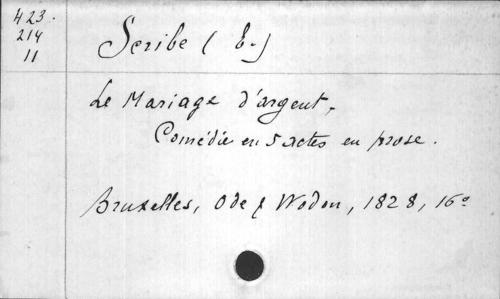 423.
214
11
Scribe (E.)
Le Mariage d'argent,
Comédie en 5 actes en prose.
Bruxelles, Ode & Wodon, 1828, 16°